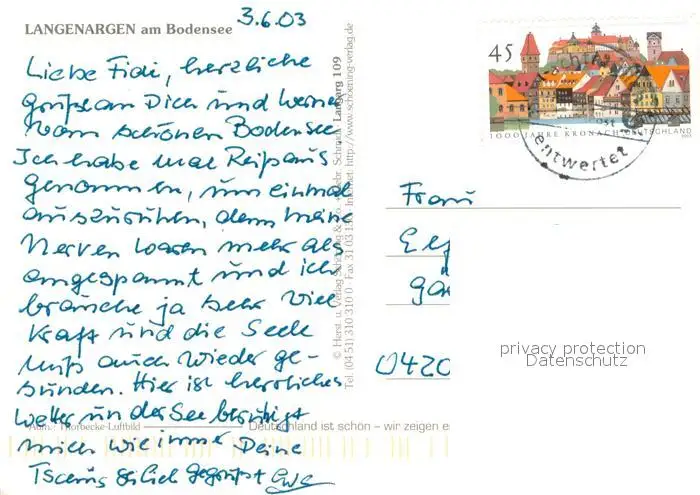 LANGENARGEN am Bodensee
3.6.03
Liebe Fidi, herzliche
Grüße an Dich und Werner
vom schönen Bodensee
Ich habe mal Reißaus
genommen, um einmal
auszuruhen, denn meine
Nerven waren mehr als
angespannt und ich
brauche ja sehr viel
Kraft und die Seele
muß auch wieder ge-
sunden. Hier ist herrliches
Wetter und der See beruhigt
mich wie immer Deine
gegrüßt
Aufn.: Thorbecke-Luftbild
Deutschland ist schön – wir zeigen es
© Herst. u. Verlag Schöning & Co. + Gebr. Schmidt Langarg 109
Tel. (04 51) 310 310 0 Fax 31 03 Internet: http://www.schoening-verlag.de
45
1000 JAHRE KRONACH DEUTSCHLAND
entwertet
Frau
0420
privacy protection
Datenschutz